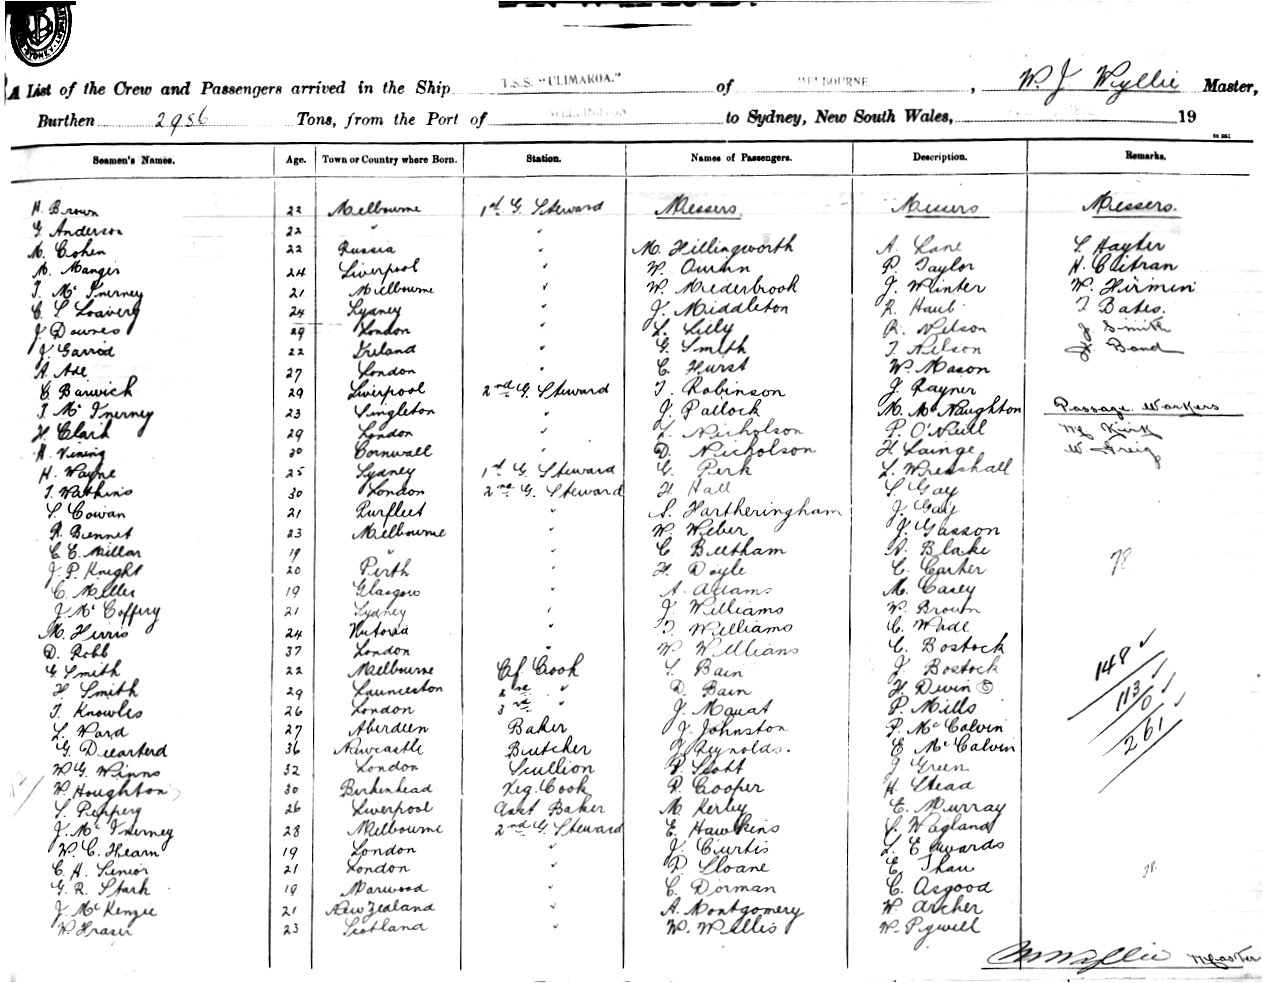 A List of the Crew and Passengers arrived in the Ship T.S.S. "ULIMAROA." of MELBOURNE, W. J. Wyllie Master,
Burthen 2986 Tons, from the Port of WELLINGTON to Sydney, New South Wales, 19
Seamen's Names. Age. Town or Country where Born. Station. Names of Passengers. Description. Remarks.
H. Brown 22 Melbourne 1st G. Steward Messers. Messers Messers.
G. Anderson 22 " "
M. Cohen 22 Russia " M. Hillingworth A. Lane S. Hayter
M. Manger 24 Liverpool " W. Quinn P. Taylor H. Clitran
T. Mc Inerney 21 Melbourne " W. Mederbrook J. Winter W. Hirmen
C. S. Loavery 24 Sydney " J. Middleton R. Haub T. Bates.
J. Downes 29 London " L. Lily R. Nelson J. Smith
J. Garrod 22 Ireland " G. Smith T. Nelson J. Bond
A. Ade 27 London " C. Hurst W. Mason
C. Barwick 29 Liverpool 2nd G. Steward T. Robinson J. Rayner
T. Mc Inerney 23 Singleton " J. Pallock M. McNaughton Passage Workers
H. Clark 29 London " L. Nicholson P. O'Neill Kirk
H. Vining 30 Cornwall " D. Nicholson H. Lainge W. Greig
H. Wayne 25 Sydney 1st G. Steward G. Perk L. Wrenshall
T. Watkins 30 London 2nd G. Steward H. Hall S. Gay
S. Cowan 21 Purfleet " S. Hartheringham J. Gay
R. Bennet 23 Melbourne " W. Weber J. Gasson
C. E. Millar 19 " " C. Beetham A. Blake 78
J. P. Knight 20 Perth " H. Doyle C. Carter
C. Miller 19 Glasgow " A. Adams M. Casey
J. McCoffery 21 Sydney " J. Williams W. Brown
M. Herris 24 Victoria " T. Williams C. Wade
D. Robb 37 London " W. Williams C. Bostock
G. Smith 22 Melbourne Cf Cook S. Bain J. Bostock 148
H. Smith 29 Launceston 2nd " D. Bain H. Devin 113
T. Knowles 26 London 3rd " J. Mouat P. Mills 0
L. Ward 27 Aberdeen Baker J. Johnston P. McCalvin 261
G. 36 Newcastle Butcher Reynolds. E. McCalvin
W. G. Winns 32 London Scullion P. Scott J. Green
W. Houghton 30 Birkenhead Veg. Cook R. Cooper H. Stead
S. Peppery 26 Liverpool Asst Baker M. Kerby E. Murray
J. Mc Inerney 28 Melbourne 2nd G. Steward E. Hawkins S. Wagland
W. C. Hearn 19 London " J. Curtis L. Edwards
C. H. Senior 21 London " P. Sloane E. Thau
G. R. Stark 19 Marwood " C. Dorman C. Asgood 78.
J. McKenzie 21 New Zealand " A. Montgomery W. Archer
W. Fraser 23 Scotland " W. Wallis W. Pywell
W. J. Wyllie Master